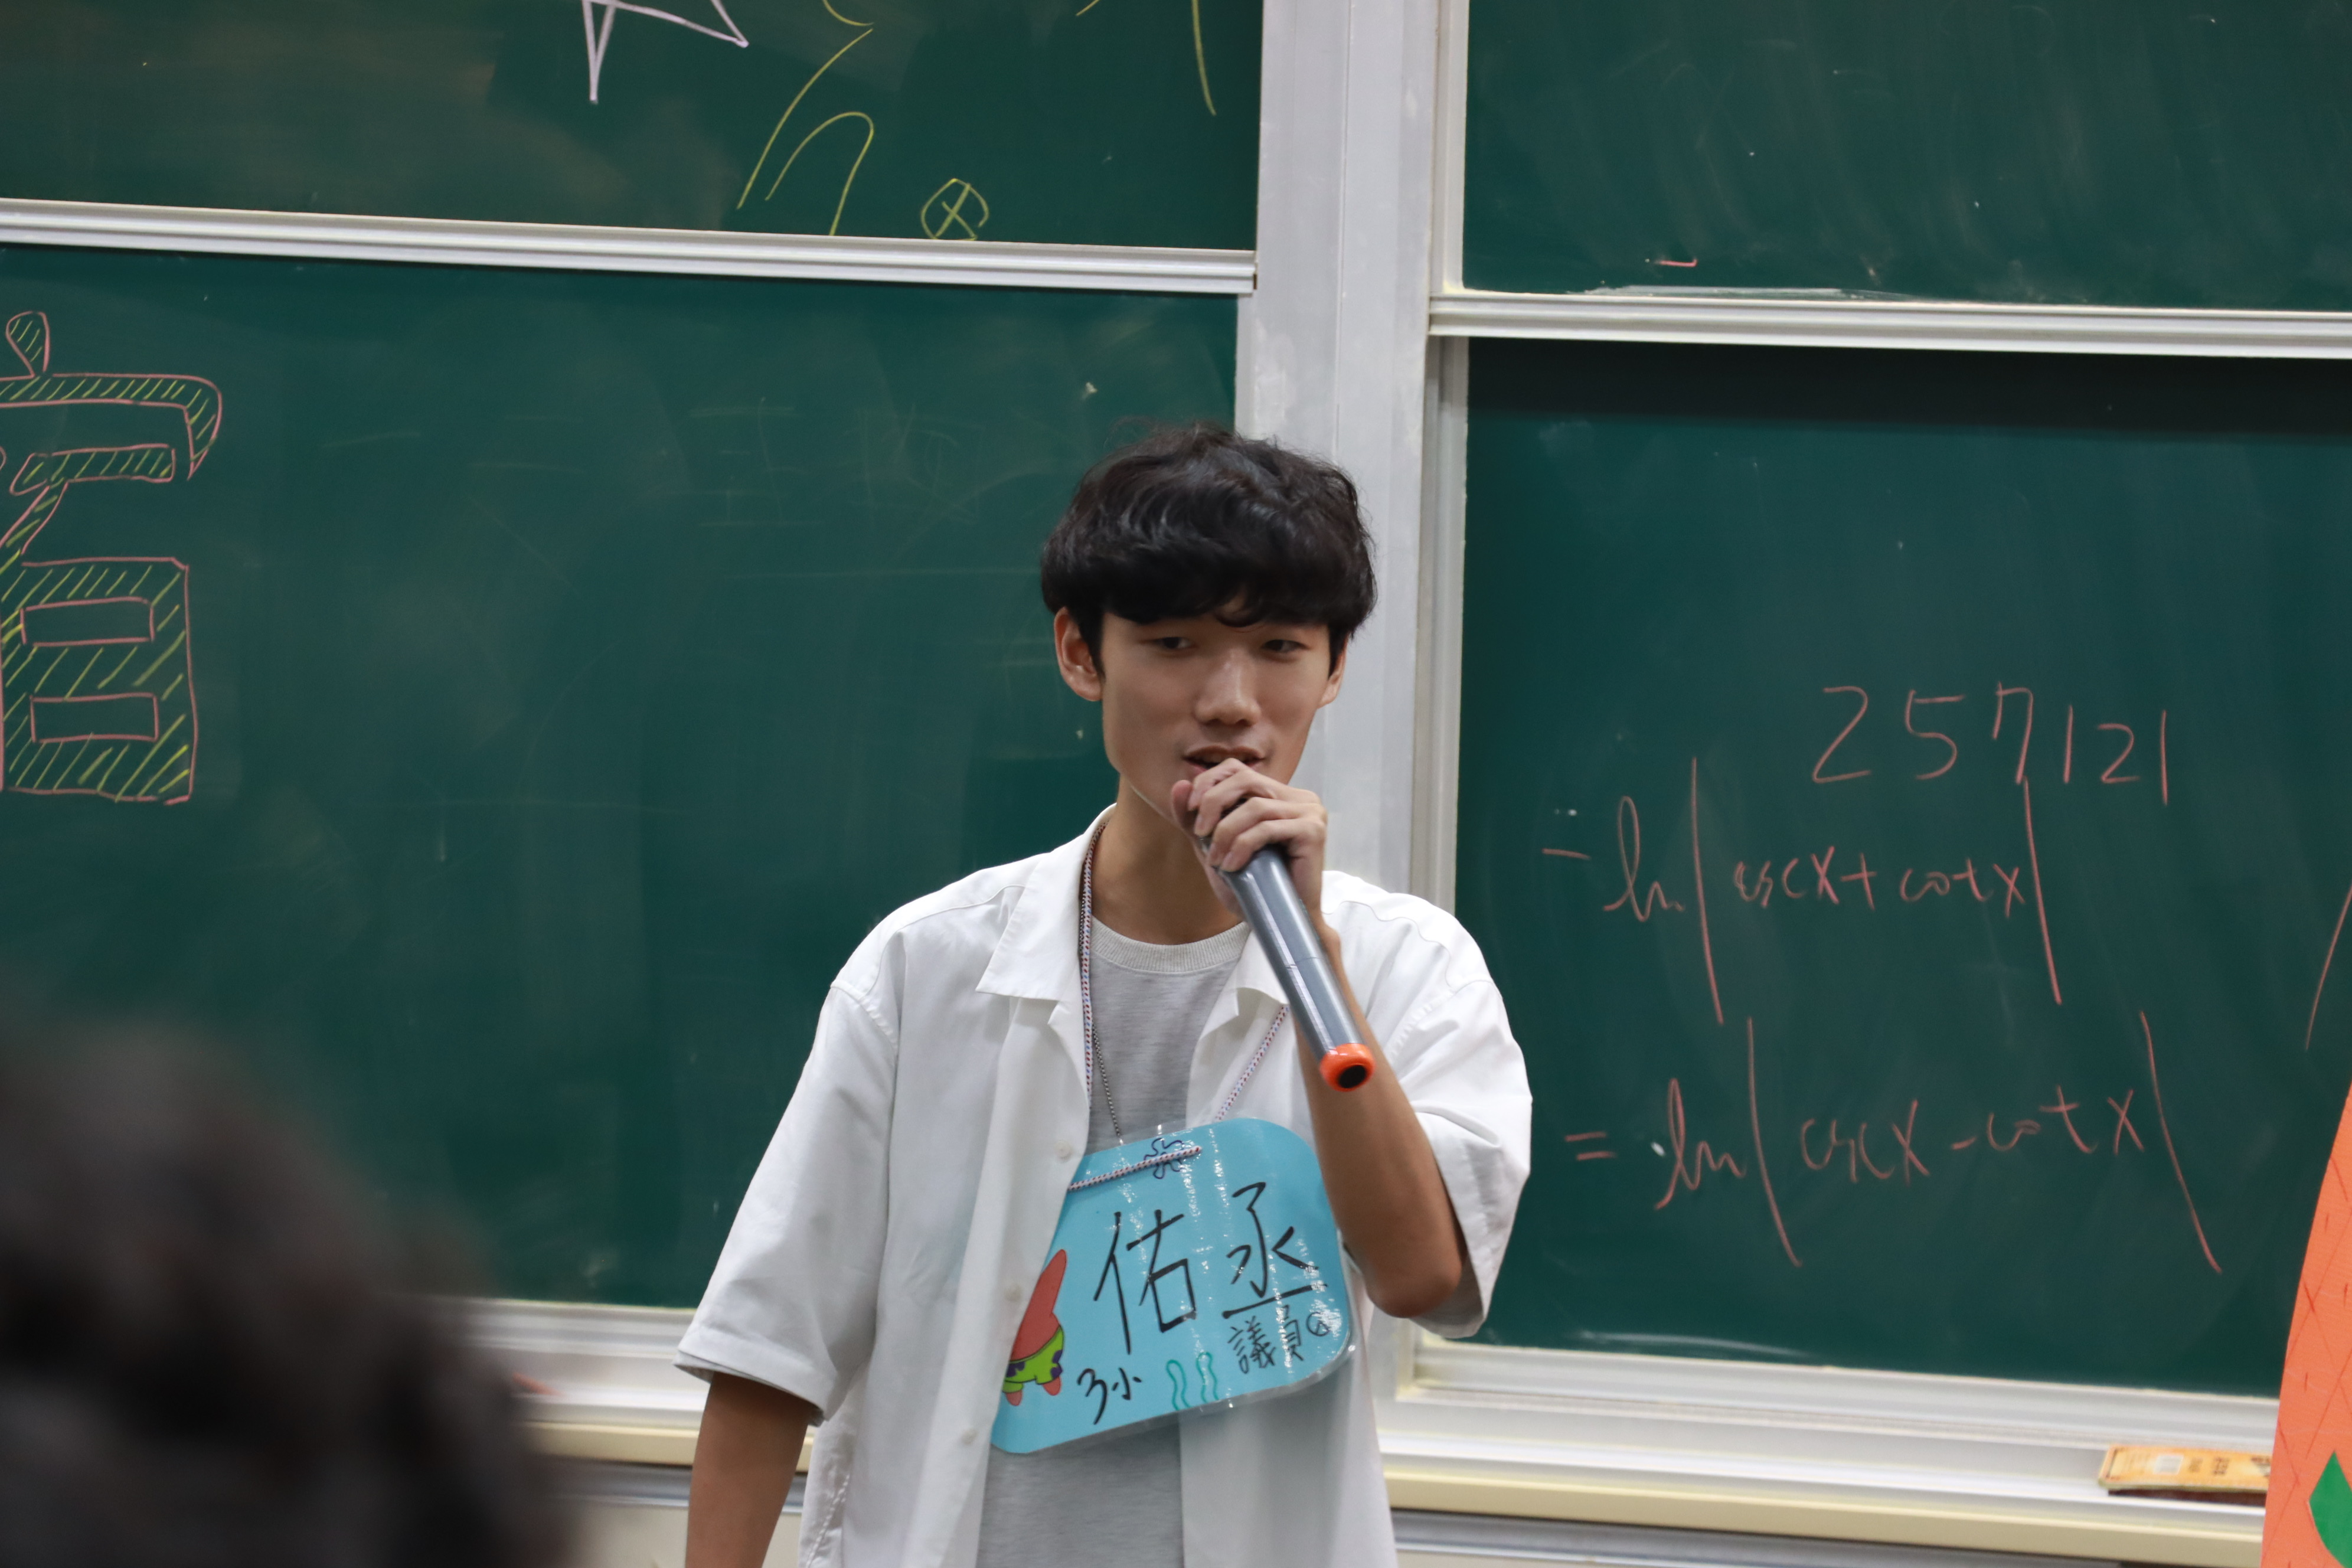 257121
-ln|cscx+cotx|
=ln|cscx-cotx|
佑丞
議員
3小